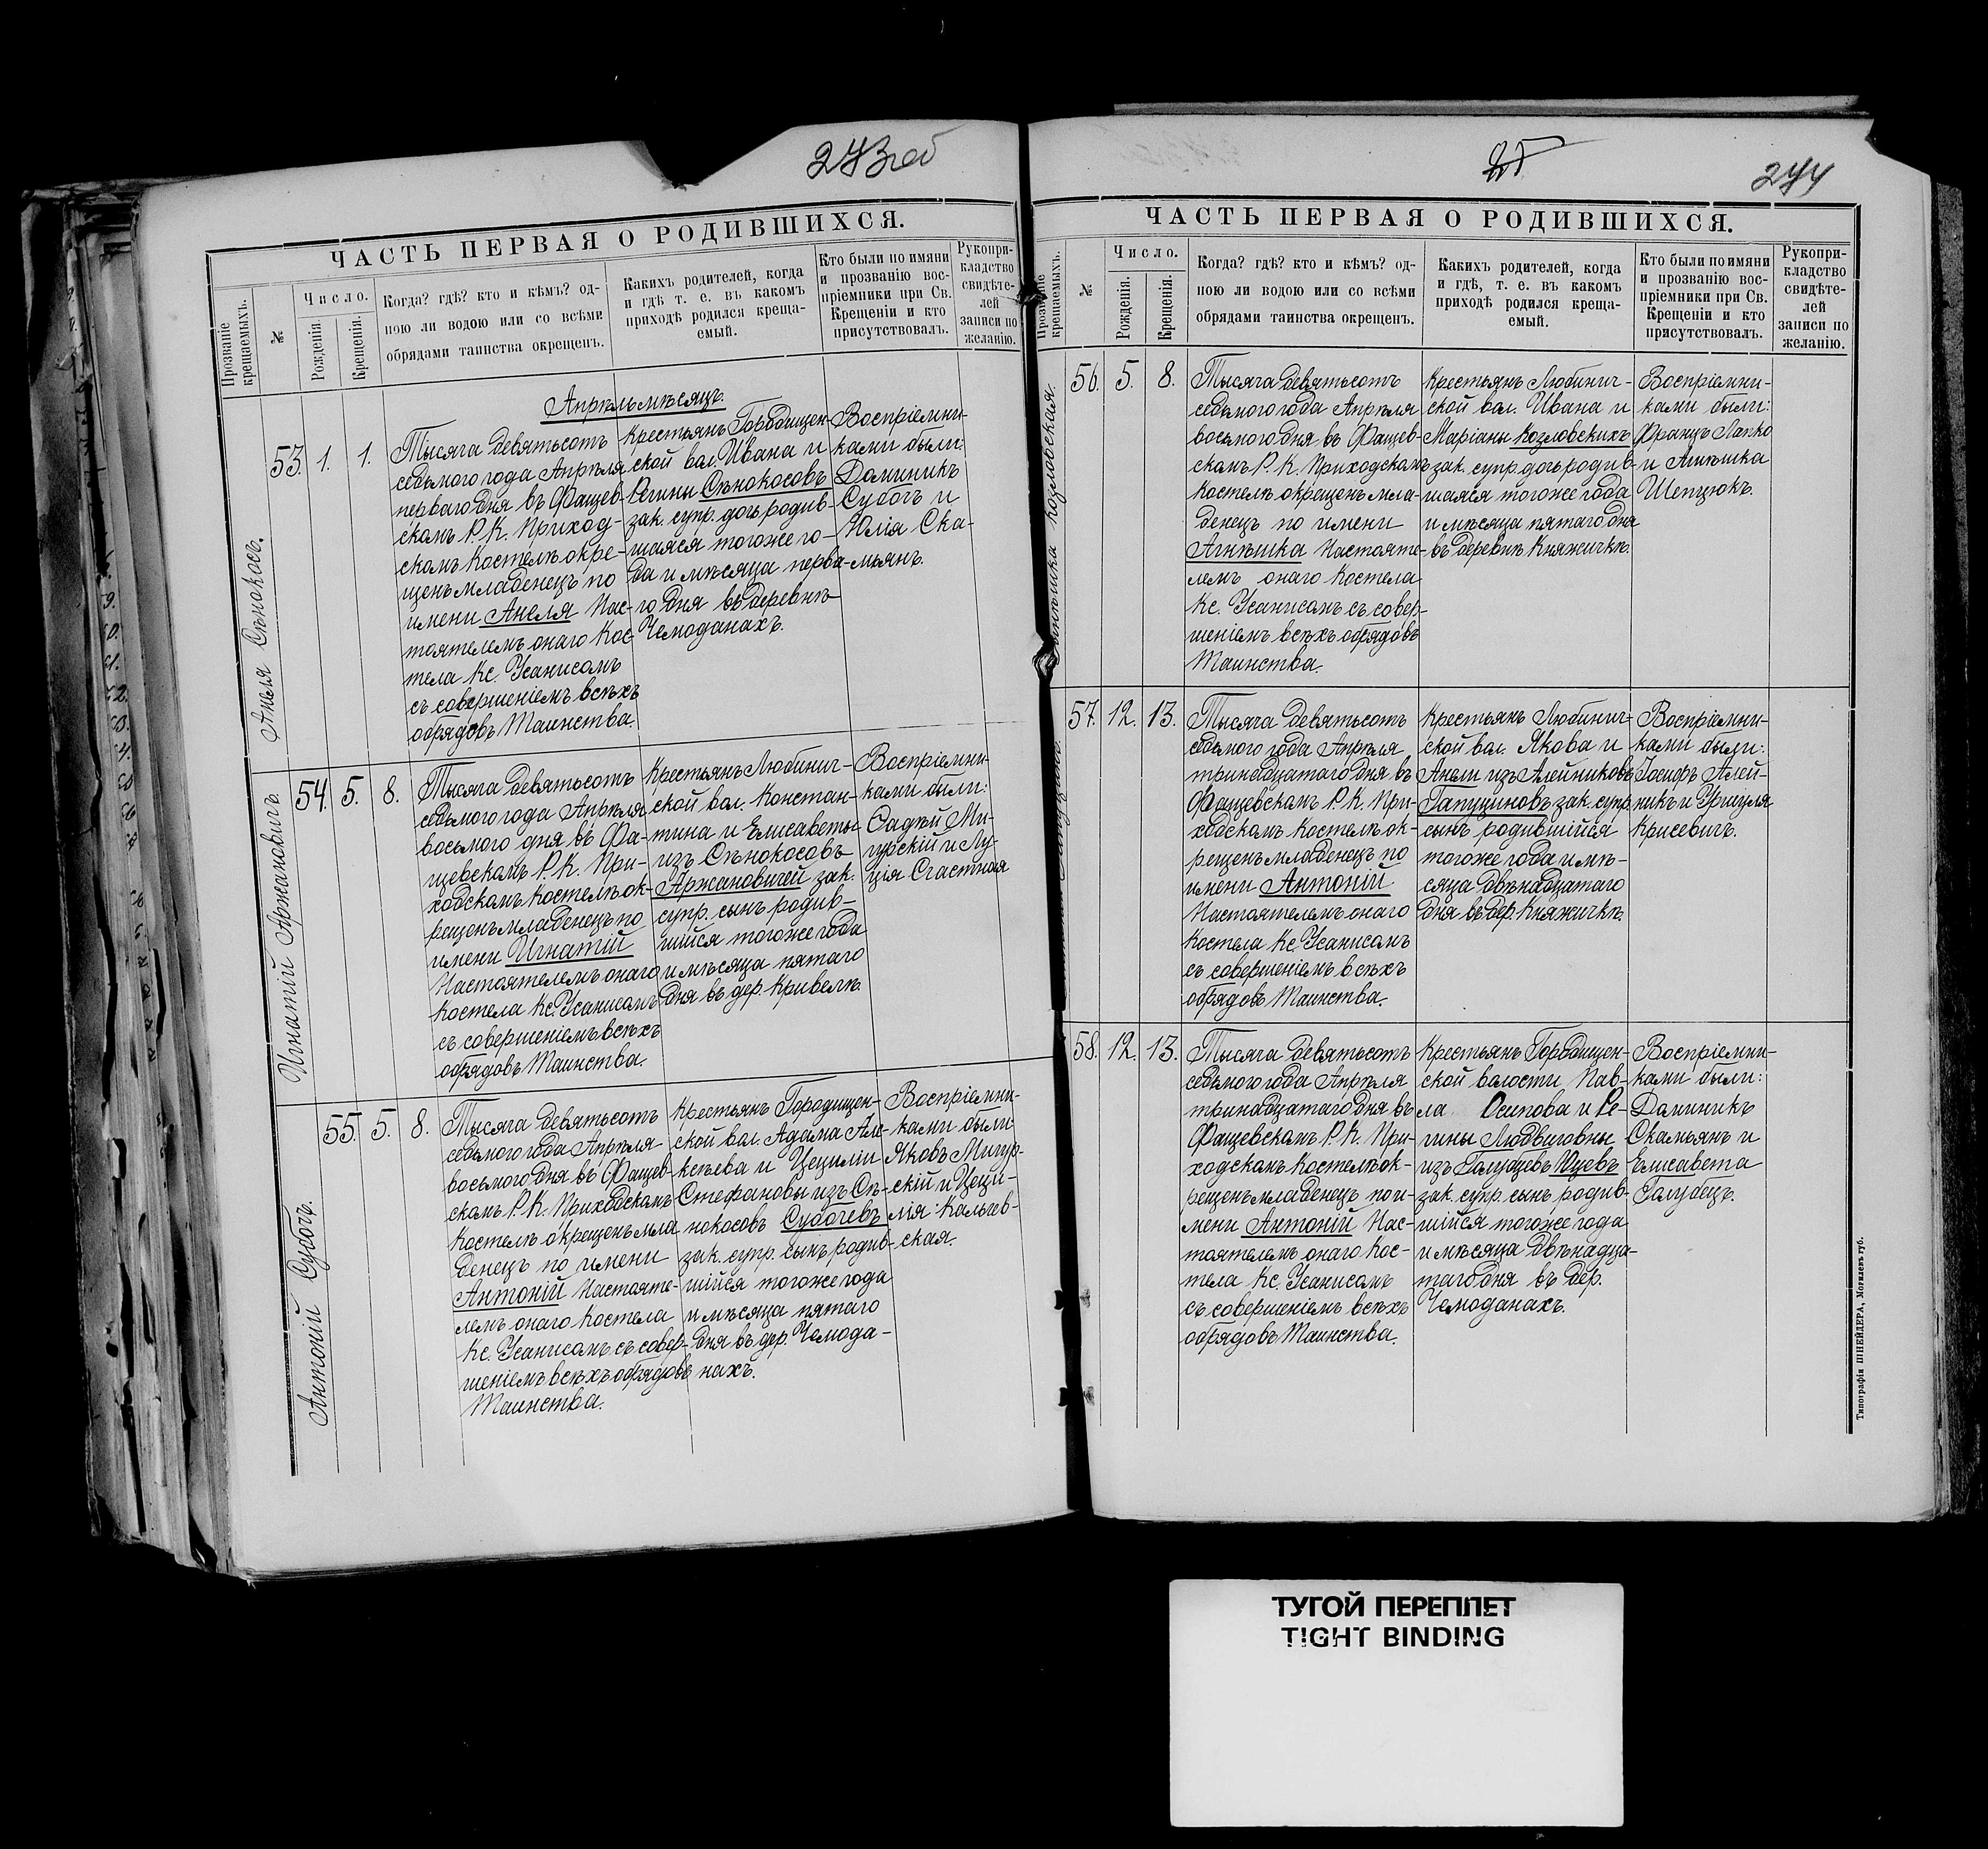 273 об
ЧАСТЬ ПЕРВАЯ О РОДИВШИХСЯ.
Прозваніе крещаемыхъ.
№
Число.
Рожденія.
Крещенія.
Когда? гдѣ? кто и кѣмъ? од-
ною ли водою или со всѣми
обрядами таинства окрещенъ.
Какихъ родителей, когда
и гдѣ т. е. въ какомъ
приходѣ родился креща-
емый.
Кто были по имяни
и прозванію вос-
пріемники при Св.
Крещеніи и кто
присутствовалъ.
Рукопри-
кладство
свидѣте-
лей
записи по
желанію.
Апрѣль мѣсяцъ.
Анеля Сѣнокосъ.
53. 1. 1.
Тысяча девятьсотъ
седьмого года Апрѣля
перваго дня въ Фащев-
скомъ Р. К. Приход-
скомъ костелѣ окре-
щенъ младенецъ по
имени Анеля Нас-
тоятелемъ онаго кос-
тела Кс. Усанисомъ
съ совершеніемъ всѣхъ
обрядовъ Таинства.
Крестьянъ Городищен-
ской вол. Ивана и
Регины Сѣнокосовъ
зак. супр. дочь родив-
шаяся тогоже го-
да и мѣсяца перва-
го дня въ деревнѣ
Чемоданахъ.
Воспріемни-
ками были:
Доминикъ
Субочъ и
Юлія Ска-
мьянъ.
Игнатій Аржановичъ.
54. 5. 8.
Тысяча девятьсотъ
седьмого года Апрѣля
восьмого дня въ Фа-
щевскомъ Р. К. При-
ходскомъ костелѣ ок-
рещенъ младенецъ по
имени Игнатій
Настоятелемъ онаго
костела Кс. Усанисомъ
съ совершеніемъ всѣхъ
обрядовъ Таинства.
Крестьянъ Любинич-
ской вол. Констан-
тина и Елисаветы
изъ Сѣнокосовъ
Аржановичей зак.
супр. сынъ родив-
шійся тогоже года
и мѣсяца пятаго
дня въ дер. Кривелѣ.
Воспріемни-
ками были:
Фадѣй Ми-
гурскій и Лу-
ція Счастная
Антоній Субочъ.
55. 5. 8.
Тысяча девятьсотъ
седьмого года Апрѣля
восьмого дня въ Фащев-
скомъ Р. К. Приходскомъ
костелѣ окрещенъ мла
денецъ по имени
Антоній Настояте-
лемъ онаго костела
Кс. Усанисомъ съ совер-
шеніемъ всѣхъ обрядовъ
Таинства.
Крестьянъ Городищен-
ской вол. Адама Але-
ксѣева и Цециліи
Стефановы изъ Сѣ-
нокосовъ Субочевъ
зак. супр. сынъ родив-
шійся тогоже года
и мѣсяца пятаго
дня въ дер. Чемода-
нахъ.
Воспріемни-
ками были
Яковъ Мигур-
скій и Цеци-
лія Кальчев-
ская.
25
274
ЧАСТЬ ПЕРВАЯ О РОДИВШИХСЯ.
Прозваніе крещаемыхъ.
№
Число.
Рожденія.
Крещенія.
Когда? гдѣ? кто и кѣмъ? од-
ною ли водою или со всѣми
обрядами таинства окрещенъ.
Какихъ родителей, когда
и гдѣ, т. е. въ какомъ
приходѣ родился креща-
емый.
Кто были по имяни
и прозванію вос-
пріемники при Св.
Крещеніи и кто
присутствовалъ.
Рукопри-
кладство
свидѣте-
лей
записи по
желанію.
Козловская.
56. 5. 8.
Тысяча девятьсотъ
седьмого года Апрѣля
восьмого дня въ Фащев-
скомъ Р. К. Приходскомъ
костелѣ окрещенъ мла-
денецъ по имени
Агнѣшка Настояте-
лемъ онаго костела
Кс. Усанисомъ съ совер-
шеніемъ всѣхъ обрядовъ
Таинства.
Крестьянъ Любинич-
ской вол. Ивана и
Маріаны Козловскихъ
зак. супр. дочь родив-
шаяся тогоже года
и мѣсяца пятаго дня
въ деревнѣ Княжичкѣ.
Воспріемни-
ками были:
Францъ Лапко
и Агнѣшка
Шепцюкъ.
57. 12. 13.
Тысяча девятьсотъ
седьмого года Апрѣля
тринадцатаго дня въ
Фащевскомъ Р. К. При-
ходскомъ костелѣ ок-
рещенъ младенецъ по
имени Антоній
Настоятелемъ онаго
костела Кс. Усанисомъ
съ совершеніемъ всѣхъ
обрядовъ Таинства.
Крестьянъ Любинич-
ской вол. Якова и
Анели изъ Алейниковъ
Гапуциновъ зак. супр.
сынъ родившійся
тогоже года и мѣ-
сяца двѣнадцатаго
дня въ дер. Княжичкѣ.
Воспріемни-
ками были:
Іосифъ Алей-
никъ и Уршуля
Крисевичъ.
58. 12. 13.
Тысяча девятьсотъ
седьмого года Апрѣля
тринадцатаго дня въ
Фащевскомъ Р. К. При-
ходскомъ костелѣ ок-
рещенъ младенецъ по и-
мени Антоній Нас-
тоятелемъ онаго кос-
тела Кс. Усанисомъ
съ совершеніемъ всѣхъ
обрядовъ Таинства.
Крестьянъ Городищен-
ской волости Пав-
ла Осипова и Ре-
гины Людвиговны
изъ Галубцевъ Юцевъ
зак. супр. сынъ родив-
шійся тогоже года
и мѣсяца двѣнадца-
таго дня въ дер.
Чемоданахъ.
Воспріемни-
ками были:
Доминикъ
Скамьянъ и
Елисавета
Галубецъ.
Типографія ШНЕЙДЕРА, Могилевъ губ.
ТУГОЙ ПЕРЕПЛЕТ
TIGHT BINDING